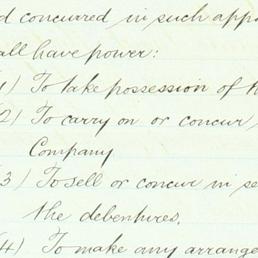 d concurred in such appo
all have power:
1) To take possession of th
2) To carry on or concur
Company
(3) To sell or concur in se
the debentures.
(4) To make any arrange